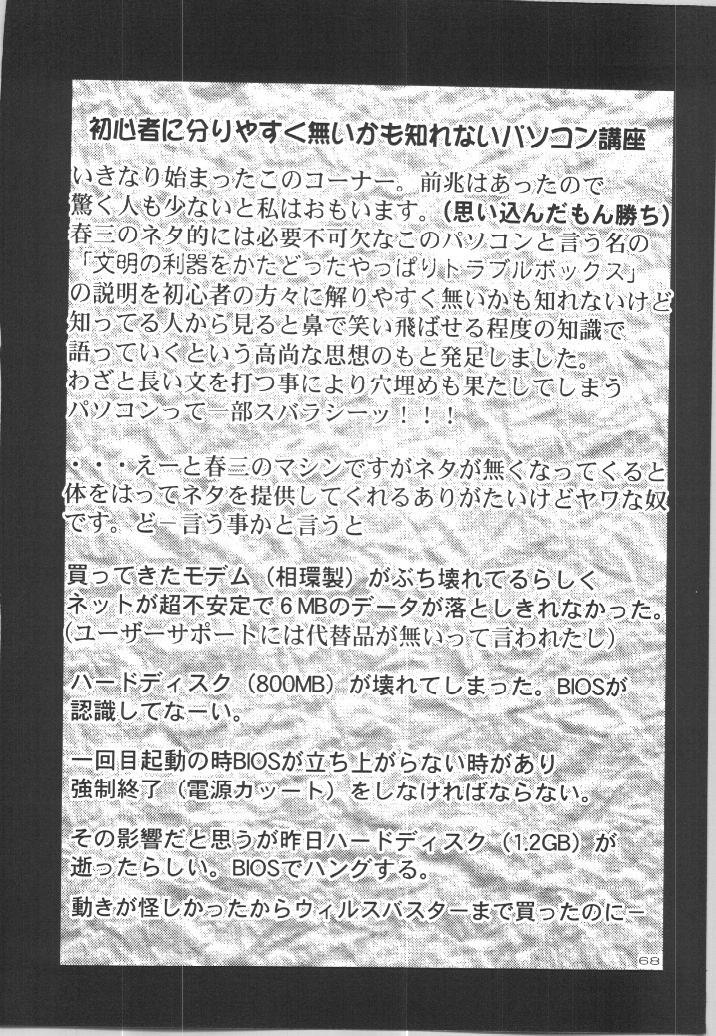 初心者に分りやすく無いかも知れないパソコン講座
いきなり始まったこのコーナー。前兆はあったので
驚く人も少ないと私はおもいます。(思い込んだもん勝ち)
春三のネタ的には必要不可欠なこのパソコンと言う名の
「文明の利器をかたどったやっぱりトラブルボックス」
の説明を初心者の方々に解りやすく無いかも知れないけど
知ってる人から見ると鼻で笑い飛ばせる程度の知識で
語っていくという高尚な思想のもと発足しました。
わざと長い文を打つ事により穴埋めも果たしてしまう
パソコンって一部スバラシーッ！！！
・・・えーと春三のマシンですがネタが無くなってくると
体をはってネタを提供してくれるありがたいけどヤワな奴
です。どー言う事かと言うと
買ってきたモデム（相環製）がぶち壊れてるらしく
ネットが超不安定で６MBのデータが落としきれなかった。
(ユーザーサポートには代替品が無いって言われたし)
ハードディスク（800MB）が壊れてしまった。BIOSが
認識してなーい。
一回目起動の時BIOSが立ち上がらない時があり
強制終了（電源カッート）をしなければならない。
その影響だと思うが昨日ハードディスク（1.2GB）が
逝ったらしい。BIOSでハングする。
動きが怪しかったからウィルスバスターまで買ったのにー
68